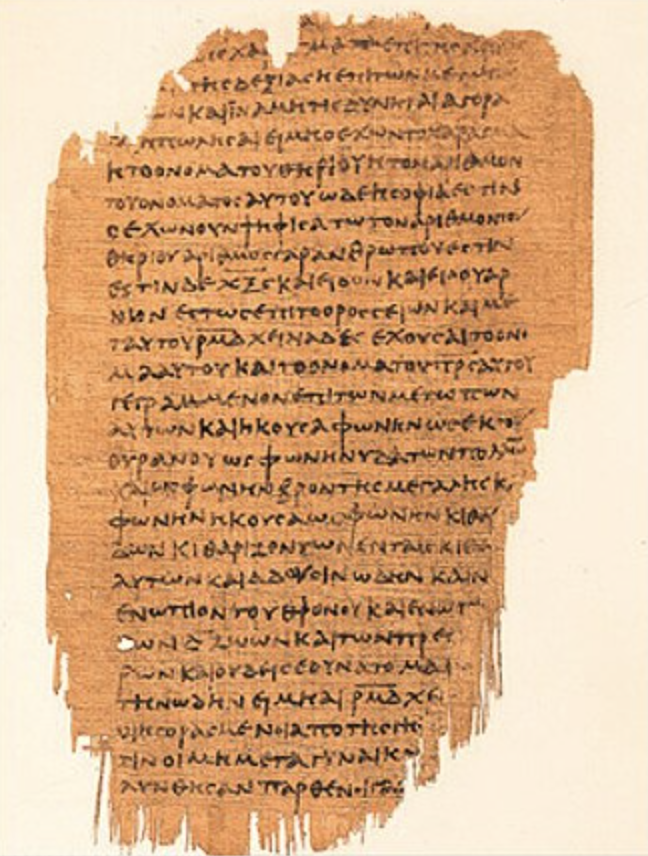 ΧΑΡ ΜΑ ΕΠΙ ΤΗC
ΤΗC ΔΕΞΙΑC Η ΕΠΙ ΤΩΝ ΜΕΤΩ
ΩΝ ΚΑΙ ΙΝΑ ΜΗ ΤΙC ΔΥΝΗΤΑΙ ΑΓΟΡΑ
Η ΠΩΛΗCΑΙ ΕΙ ΜΗ Ο ΕΧΩΝ ΤΟ ΧΑΡΑΓΜΑ
Η ΤΟ ΟΝΟΜΑ ΤΟΥ ΘΗΡΙΟΥ Η ΤΟΝ ΑΡΙΘΜΟΝ
ΤΟΥ ΟΝΟΜΑΤΟC ΑΥΤΟΥ ΩΔΕ Η CΟΦΙΑ ΕCΤΙΝ
Ο ΕΧΩΝ ΟΥΝ ΨΗΦΙCΑΤΩ ΤΟΝ ΑΡΙΘΜΟΝ
ΘΗΡΙΟΥ ΑΡΙΘΜΟC ΓΑΡ ΑΝΘΡΩΠΟΥ ΕCΤΙΝ
ΕCΤΙΝ ΔΕ Χ̅Ξ̅C̅ ΚΑΙ ΕΙΔΟΝ ΚΑΙ ΕΙΔΟΥ ΑΡ
ΝΙΟΝ ΕCΤΩC ΕΠΙ ΤΟ ΟΡΟC CΕΙΩΝ ΚΑΙ ΜΕ
Τ ΑΥΤΟΥ Ρ̅Μ̅Δ̅ ΧΕΙΛΙΑΔΕC ΕΧΟΥCΑΙ ΤΟ ΟΝΟ
ΜΑ ΑΥΤΟΥ ΚΑΙ ΤΟ ΟΝΟΜΑ ΤΟΥ Π̅Ρ̅C̅ ΑΥΤΟΥ
ΓΕΓΡΑΜΜΕΝΟΝ ΕΠΙ ΤΩΝ ΜΕΤΩΠΩΝ
ΑΥΤΩΝ ΚΑΙ ΗΚΟΥCΑ ΦΩΝΗΝ ΩC ΕΚ ΤΟΥ
ΟΥΡΑΝΟΥ ΩC ΦΩΝΗΝ ΥΔΑΤΩΝ ΠΟΛΛΩ̅
ΚΑΙ ΩC ΦΩΝΗΝ ΒΡΟΝΤΗC ΜΕΓΑΛΗC Κ
ΦΩΝΗΝ ΗΚΟΥCΑ ΩC ΦΩΝΗΝ ΚΙΘΑΡ
ΔΩΝ ΚΙΘΑΡΙΖΟΝΤΩΝ ΕΝ ΤΑΙC ΚΙΘ
ΑΥΤΩΝ ΚΑΙ ΑΔΟΥCΙΝ ΩΔΗΝ ΚΑΙΝ
ΕΝΩΠΙΟΝ ΤΟΥ ΘΡΟΝΟΥ ΚΑΙ ΕΝΩΠ
ΤΩΝ Δ̅ ΖΩΩΝ ΚΑΙ ΤΩΝ ΠΡΕC
ΡΩΝ ΚΑΙ ΟΥΔΕΙC ΕΔΥΝΑΤΟ ΜΑΘ
ΤΗΝ ΩΔΗΝ ΕΙ ΜΗ ΑΙ Ρ̅Μ̅Δ̅ ΧΕΙ
ΟΙ ΗΓΟΡΑCΜΕΝΟΙ ΑΠΟ ΤΗC ΓΗC
ΤΙΝ ΟΙ ΜΗ ΜΕΤΑ ΓΥΝΑΙΚΩ
ΛΥΝΘΗCΑΝ ΠΑΡΘΕΝΟΙ ΓΑΡ